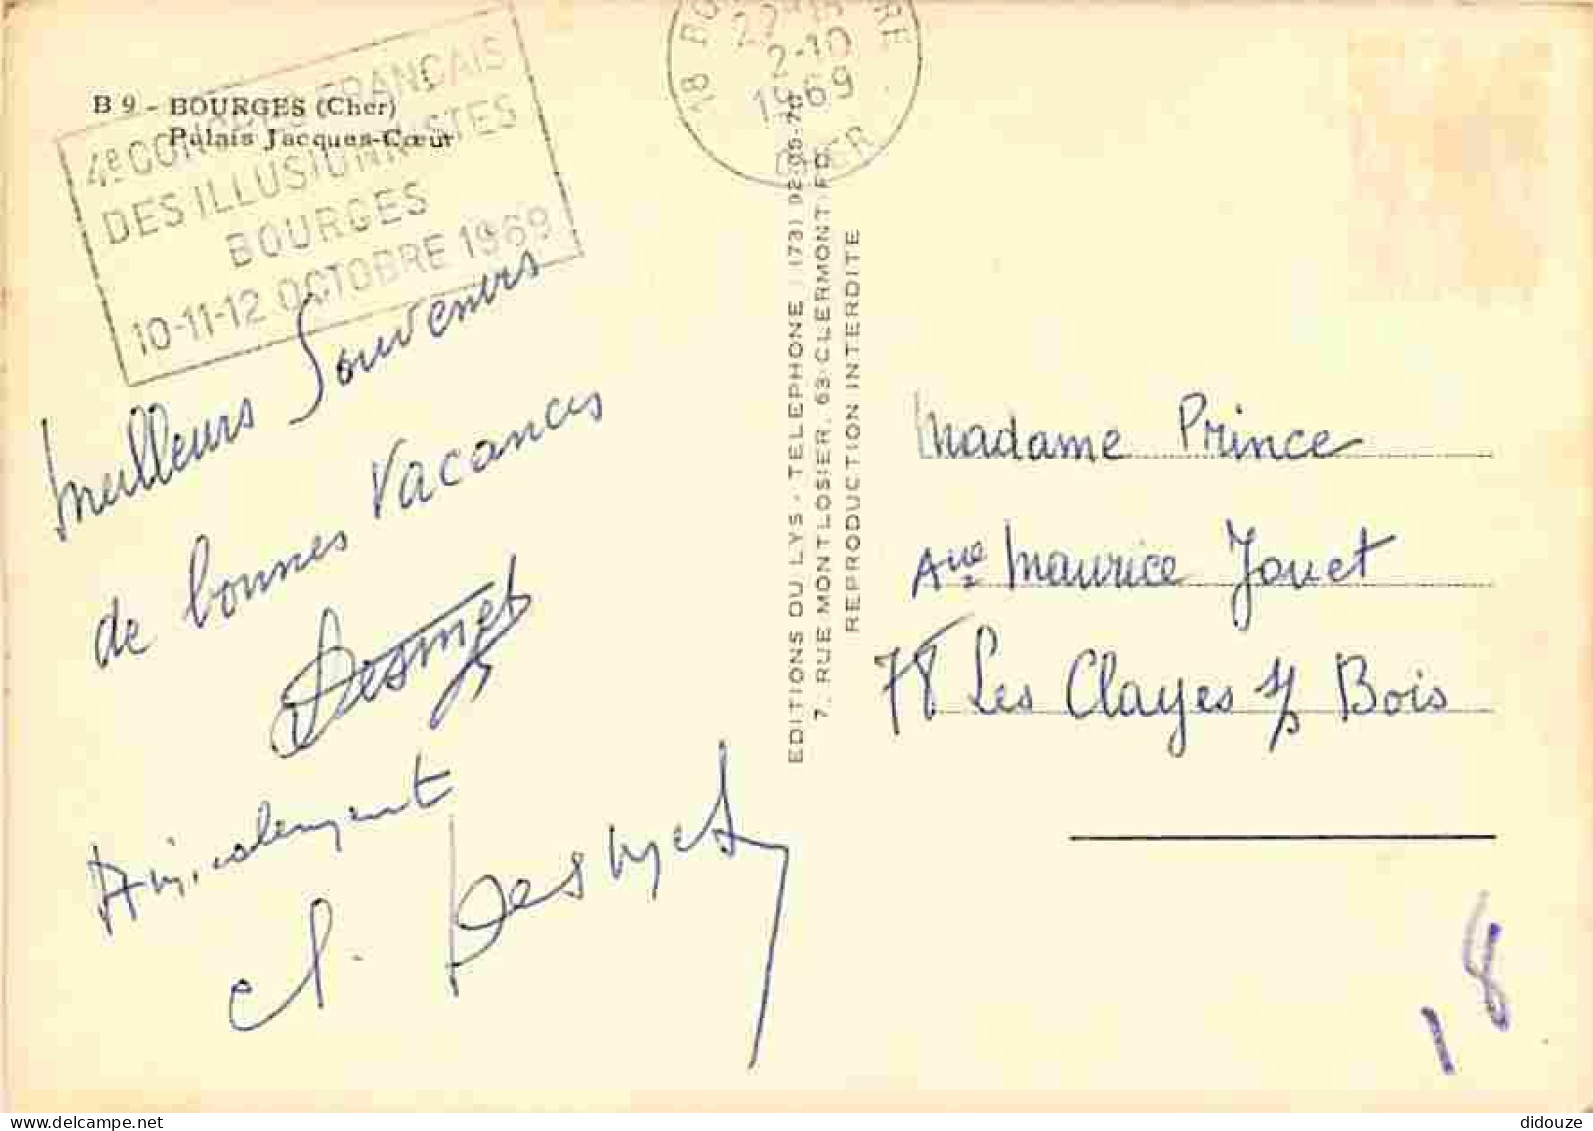 B 9 - BOURGES (Cher)
Palais Jacques-Cœur
4e CONGRES FRANCAIS
DES ILLUSIONNISTES
BOURGES
10-11-12 OCTOBRE 1969
18 BO RE
22H15
2-10
1969
CHER
Meilleurs Souvenirs
de bonnes Vacances
Desmet
Amicalement
cl. Desmet
EDITIONS DU LYS - TELEPHONE (173) 92-05-70
7, RUE MONTLOSIER, 63-CLERMONT-FD.
REPRODUCTION INTERDITE
Madame Prince
Aue Maurice Jouet
78 Les Clayes s/s Bois
18
delcampe.net
didouze